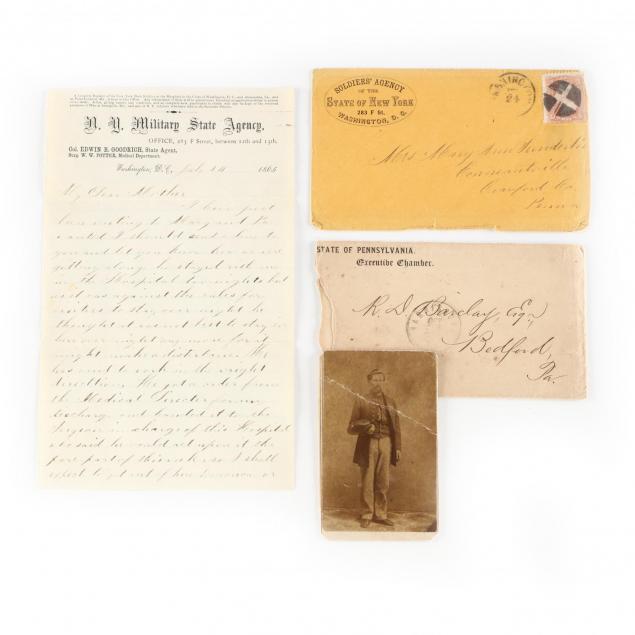 N. Y. Military State Agency,
OFFICE, 283 F Street, between 12th and 13th.
Col. EDWIN R. GOODRICH, State Agent,
Surg. W. W. POTTER, Medical Department.
Washington, D.C., July 24 1865
My Dear Mother
I have just
been writing to Margaret Pa
wanted I should send a line to
you and let you know how we are
getting along he stayed with me
in the Hospital two nights but
as it was against the rules for
visitors to stay over night he
thought it was not best to stay
here over night any more for it
might make a disturbance. We
have went to work in the right
direction. We got a order from
the Medical Director for my
discharge and handed it to the
Surgeon in charge of this Hospital
who said he would act upon it the
fore part of this week so I shall
expect to get out of here tomorrow or
SOLDIERS' AGENCY
OF THE
STATE OF NEW YORK
283 F St.
WASHINGTON, D.C.
WASHINGTON
24
Mrs Mary Ann
Conneautville
Crawford Co.
Penna
STATE OF PENNSYLVANIA.
Executive Chamber.
R. D. Barclay, Esq,
Bedford,
Pa.